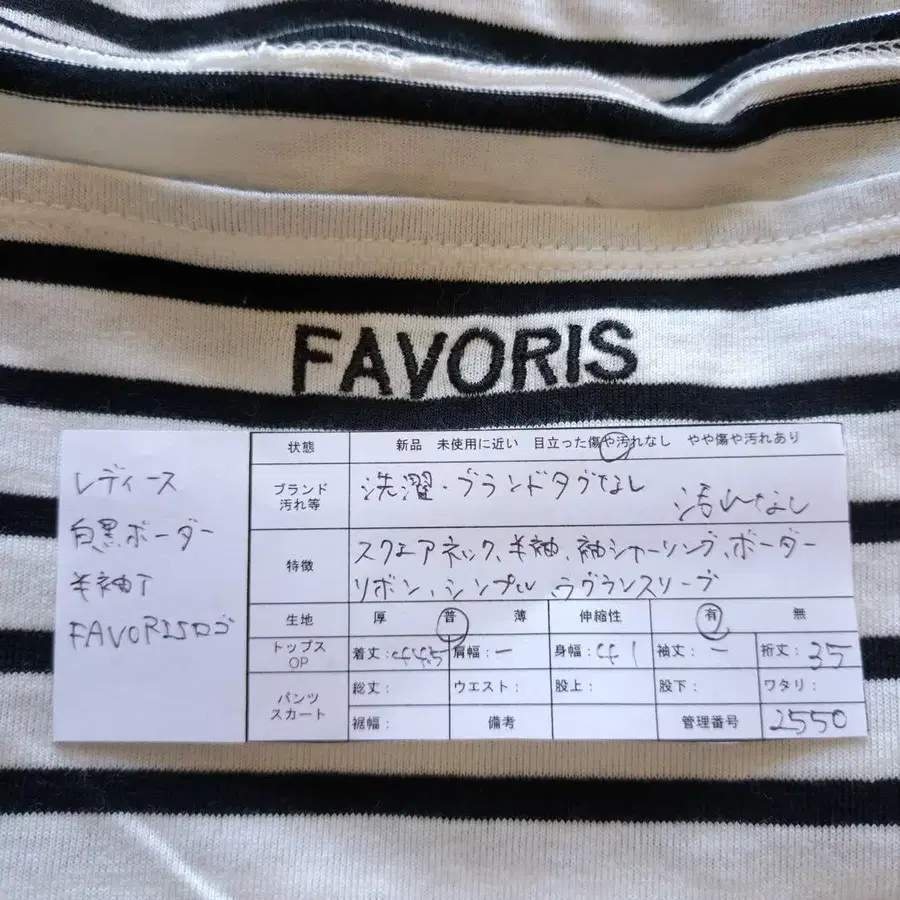 FAVORIS
レディース
白黒ボーダー
半袖T
FAVORISロゴ
状態 新品 未使用に近い 目立った傷や汚れなし やや傷や汚れあり
ブランド
汚れ等
洗濯・ブランドタグなし
汚れなし
特徴
スクエアネック、半袖、袖シャーリング、ボーダー
リボン、シンプル ラグランスリーブ
生地 厚 普 薄 伸縮性 有 無
トップス
OP
着丈:44.5 肩幅:ー 身幅:41 袖丈:ー 裄丈:35
パンツ
スカート
総丈: ウエスト: 股上: 股下: ワタリ:
裾幅: 備考 管理番号 2550